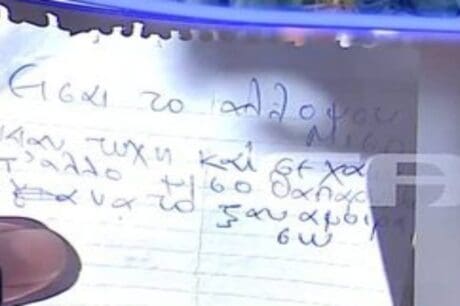 Εισαι το αλλομου
Μισο
και τυχη και σε χα
τ'αλλο μισο θα παρ
να το ξαναμοιρα
σω